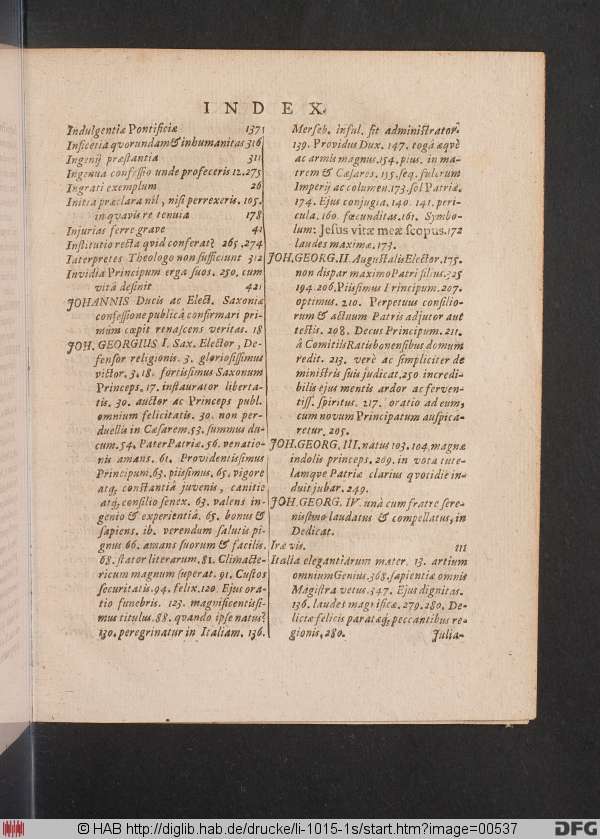 INDEX.
Indulgentiæ Pontificiæ 137
Inficetia qvorundam & inhumanitas 316
Ingenij præstantia 311
Ingenua confessio unde profeceris 12.275
Ingrati exemplum 26
Initia præclara nil, nisi perrexeris. 105.
inqvavis re tenuia 178
Injurias ferre grave 41
Institutio recta qvid conferat? 265.274
Interpretes Theologo non sufficiunt 312
Invidia Principum erga suos. 250. cum
vitâ desinit 421
JOHANNIS Ducis ac Elect. Saxoniæ
confessione publicâ confirmari pri-
mùm cœpit renascens veritas. 18
JOH. GEORGIUS I. Sax. Elector, De-
fensor religionis. 3. gloriosissimus
victor. 3.18. fortissimus Saxonum
Princeps. 17. instaurator liberta-
tis. 30. auctor ac Princeps publ.
omnium felicitatis. 30. non per-
duellia in Cæsarem. 53. summus du-
cum. 54. Pater Patriæ. 56. venatio-
nis amans. 61. Providentissimus
Principum. 63. piissimus. 65. vigore
atq; constantiâ juvenis, canitie
atq; consilio senex. 63. valens in-
genio & experientiâ. 65. bonus &
sapiens. ib. verendum salutis pi-
gnus 66. amans suorum & facilis.
68. stator literarum. 81. Climacte-
ricum magnum superat. 91. Custos
securitatis. 94. felix. 120. Ejus ora-
tio funebris. 123. magnificentissi-
mus titulus. 88. qvando ipse natus?
130. peregrinatur in Italiam. 136.
Merseb. insul. fit administrator.
139. Providus Dux. 147. togâ æqvè
ac armis magnus. 154. pius. in ma-
trem & Cæsares. 155. seq. fulcrum
Imperij ac columen. 173. sol Patriæ.
174. Ejus conjugia. 140. 141. peri-
cula. 160. fœcunditas. 161. Symbo-
lum: Jesus vitæ meæ scopus. 172
laudes maximæ. 173.
JOH. GEORG. II. Augustalis Elector. 175.
non dispar maximo Patri filius. 325
194. 206. Piissimus Principum. 207.
optimus. 210. Perpetuus consilio-
rum & actuum Patris adjutor aut
testis. 208. Decus Principum. 211.
à Comitiis Ratisbonensibus domum
redit. 213. verè ac simpliciter de
ministris suis judicat. 250 incredi-
bilis ejus mentis ardor ac ferven-
tiss. spiritus. 217. oratio ad eum,
cum novum Principatum auspica-
retur. 205.
JOH. GEORG. III. natus 103. 104. magnæ
indolis princeps. 269. in vota tute-
lamque Patriæ clarius qvotidie in-
duit jubar. 249.
JOH. GEORG. IV. unà cum fratre sere-
nissimo laudatus & compellatus, in
Dedicat.
Iræ vis. 111
Italia elegantiarum mater. 13. artium
omnium Genius. 368. sapientiæ omnis
Magistra vetus. 347. Ejus dignitas.
136. laudes magnificæ. 279. 280. De-
lictæ felicis parataq; peccantibus re-
gionis. 280. Julia-
© HAB http://diglib.hab.de/drucke/li-1015-1s/start.htm?image=00537
DFG